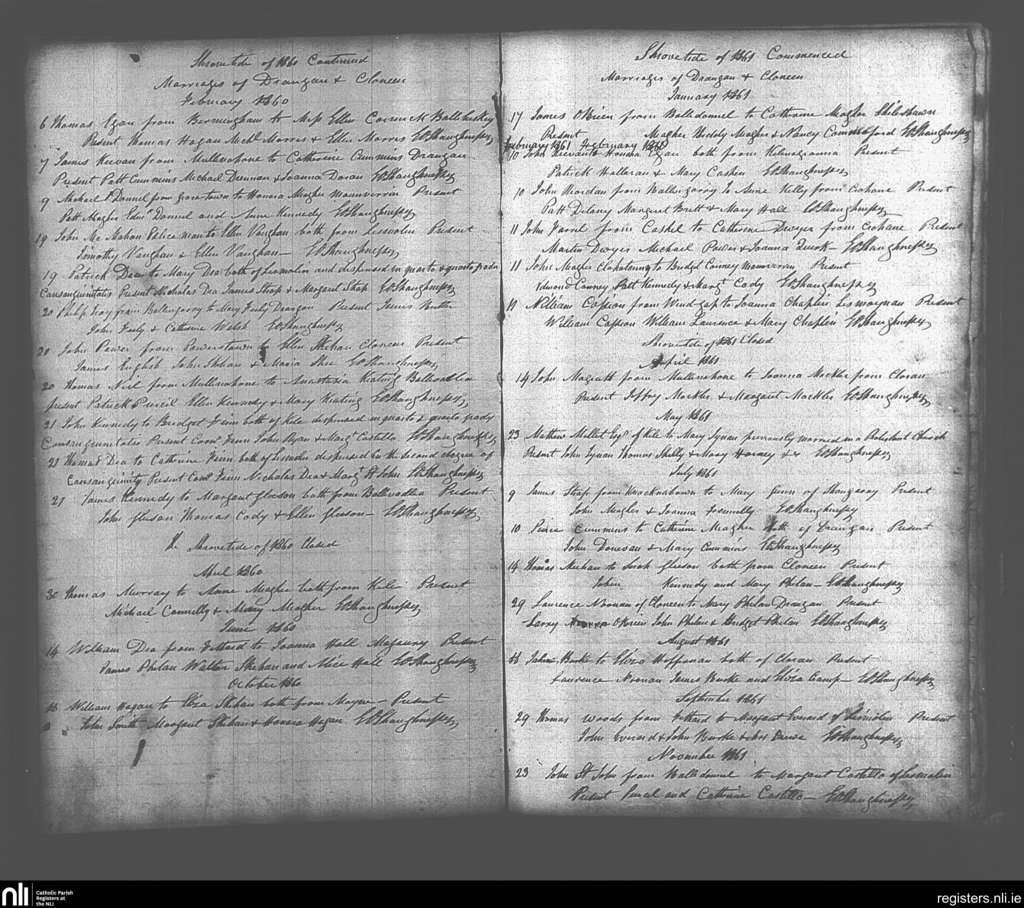 Shrovetide of 1860 Continued
Marriages of Drangan & Cloneen
February 1860
6 Thomas Egan from Bermingham to Mrs Ellen Cormack
Present Thomas Hogan Mich Morris & Ellen Morris EO'Shaughnessy
7 James Keevan from Mullenahone to Catherine Cummins Drangan
Present Patt Cummins Michael Drennan & Joanna Doran EO'Shaughnessy
9 Michael O'Donnel from to Honora Magher Present
Patt Magher Edmd Donnel and Anne Kennedy EO'Shaughnessy
19 John Mc Mahon Police man to Ellen Vaughan both from Lismolin Present
Timothy Vaughan & Ellen Vaughan EO'Shaughnessy
19 Patrick Dea to Mary Dea both of Lismolin and dispensed in quarto & quarto gradu
Consanguinitatis Present Nicholas Dea James Shap & Margaret Shap EO'Shaughnessy
20 Philip from Ballingarry to Mary Drangan Present James
John & Catherine Welsh EO'Shaughnessy
20 John Power from Powerstown to Ellen Shehan Cloneen Present
James English John Shehan & Maria Shee EO'Shaughnessy
20 Thomas Neil from Mullenahone to Anastatia Keating Ballvadlea
present Patrick Purcil Ellen Kennedy & Mary Keating EO'Shaughnessy
21 John Kennedy to Bridget both of Kile dispensed in quarto & quarto grady
Consanguinitatis Present John Ryan & Margt Costello EO'Shaughnessy
21 Thomas Dea to Catherine both of Lismolin dispensed in the second degree of
Consanguinity Present Nicholas Dea & Margt St John EO'Shaughnessy
21 James Kennedy to Margaret Gleeson both from Ballvadlea Present
John Gleeson Thomas Cody & Ellen Gleeson EO'Shaughnessy
Shrovetide of 1860 Closed
April 1860
30 Thomas Murray to Anne Magher both from Kile Present
Michael Connolly & Mary Magher EO'Shaughnessy
June 1860
14 William Dea from Fethard to Joanna Hall Present
James Phelan Walter Shehan and Alice Hall EO'Shaughnessy
October 1860
William Hogan to Eliza Shehan both from Present
John Smith Margaret Shehan & Honora Hogan EO'Shaughnessy
Shrovetide of 1861 Commenced
Marriages of Drangan & Cloneen
January 1861
17 James OBrien from Balldonnel to Catherine Magher
Present Magher Thirdely Magher & Nancy EO'Shaughnessy
February 1861 February 1861
10 John to Honora Egan both from Present
Patrick Halloran & Mary Cashin EO'Shaughnessy
10 John Riordan from Ballingarry to Anne Kelly from Crohane Present
Patt Delany Margaret Brett & Mary Hall EO'Shaughnessy
11 John Farrel from Cashel to Catherine Dwyer from Crohane Present
Martin Dwyer Michael Power & Joanna Quirk EO'Shaughnessy
11 John Magher to Bridget Conway Present
Edmond Conway Patt Kennedy & Margt Cody EO'Shaughnessy
11 William from Windgap to Joanna Chaplin Present
William William Laurence & Mary Chaplin EO'Shaughnessy
Shrovetide of 1861 Closed
April 1861
14 John Magrath from Mullenahone to Joanna Mockler from Cloran
Present Jeffry Mockler & Margaret Mockler EO'Shaughnessy
May 1861
23 Mathew Mellet Esqr of Kile to Mary Tynan previously married in a Protestant Church
Present John Tynan Thomas Shelly & Mary Harney &c EO'Shaughnessy
July 1861
9 James from Knocknahown to Mary of Present
John Magher & Joanna EO'Shaughnessy
10 Pierce Cummins to Catherine Magher both of Drangan Present
John Donovan & Mary Cummins EO'Shaughnessy
14 Thomas Meehan to Gleeson both from Cloneen Present
John Kennedy and Mary Phelan EO'Shaughnessy
29 Laurence Noonan of Cloneen to Mary Phelan Drangan Present
Larry OBrien John Phelan & Bridget Phelan EO'Shaughnessy
August 1861
James Burke to Eliza Heffernan both of Cloran Present
Laurence Noonan James Burke and Eliza Camp EO'Shaughnessy
September 1861
29 Thomas Woods from Fethard to Margaret Everard of Lismolin Present
John Everard & John Rourke EO'Shaughnessy
November 1861
23 John St John from Balldonnel to Margaret Costello of Lismolin
Present Purcel and Catherine Costello EO'Shaughnessy
nli Catholic Parish
Registers at
the NLI
registers.nli.ie